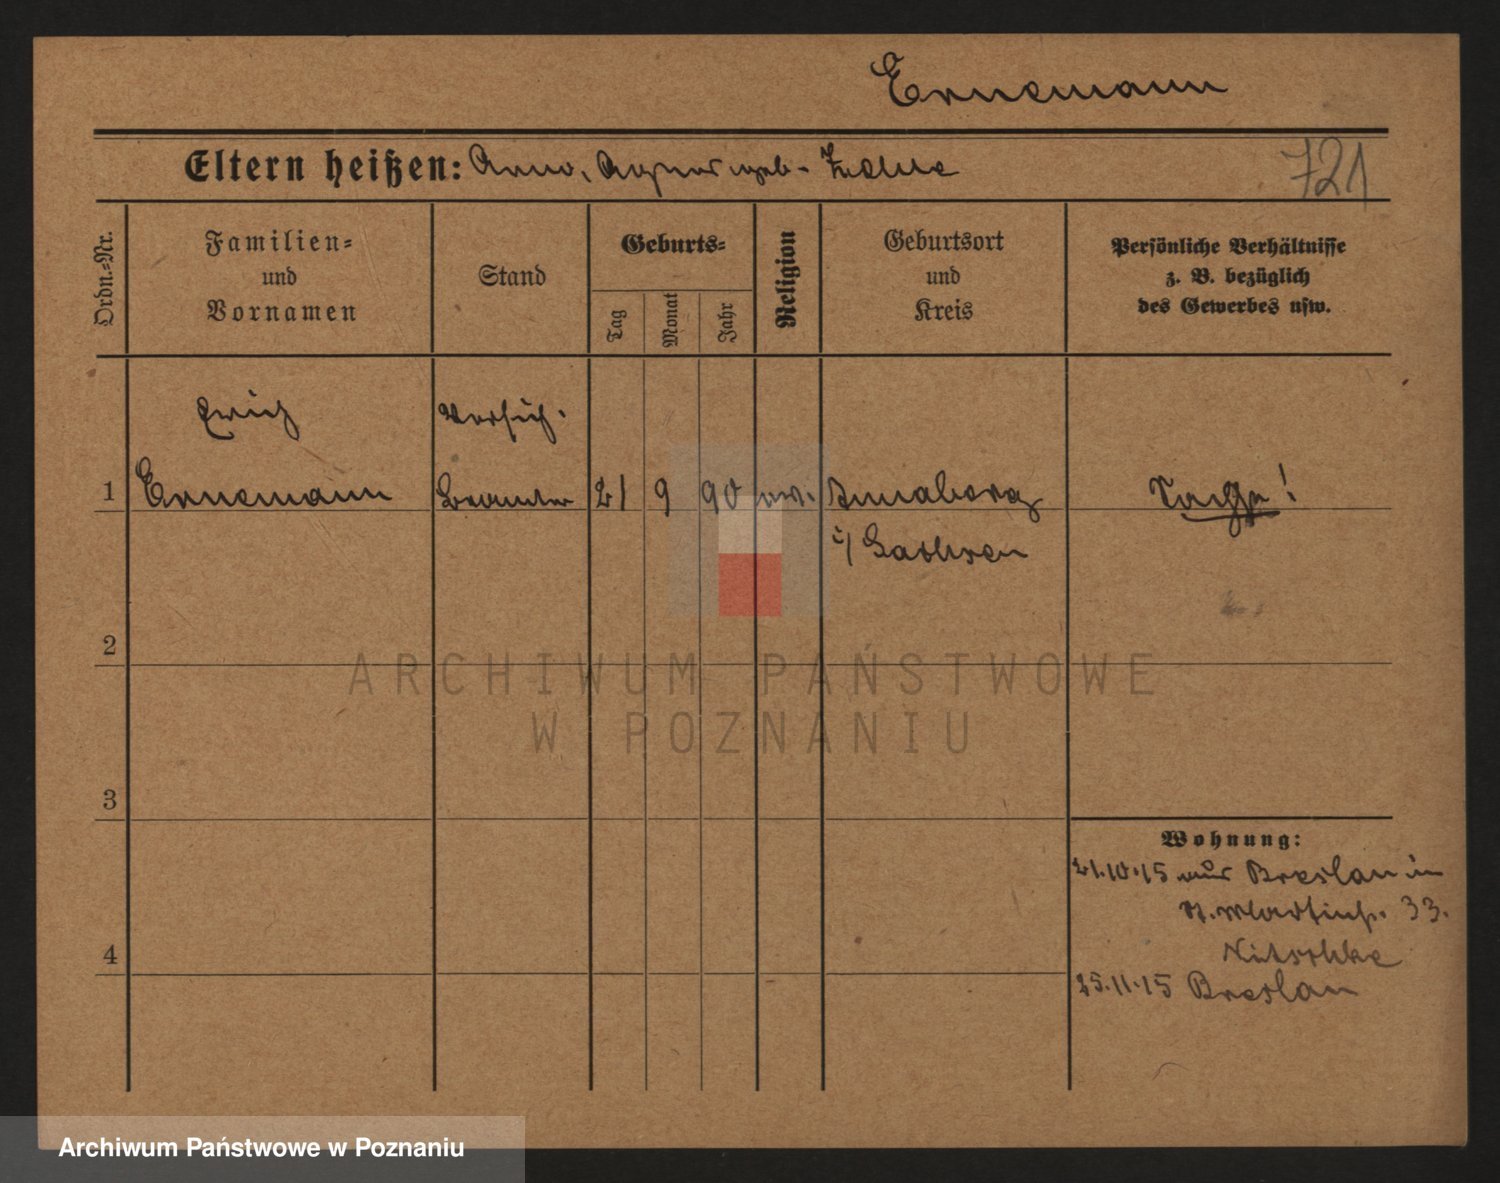 Ernemann
Eltern heißen: Arno, Agnes geb. Zecke
721
Ordn.=Nr.
Familien=
und
Vornamen
Stand
Geburts=
Tag
Monat
Jahr
Religion
Geburtsort
und
Kreis
Persönliche Verhältnisse
z. B. bezüglich
des Gewerbes usw.
Erich
Versich.
1 Ernemann Beamter 21 9 90 ev. Annaberg
i/ Sachsen
Sachse!
2
ARCHIWUM PAŃSTWOWE
W POZNANIU
3
Wohnung:
21.10.15 aus Breslau in
St. Martinstr. 33.
Nitschke
4
25.11.15 Breslau
Archiwum Państwowe w Poznaniu